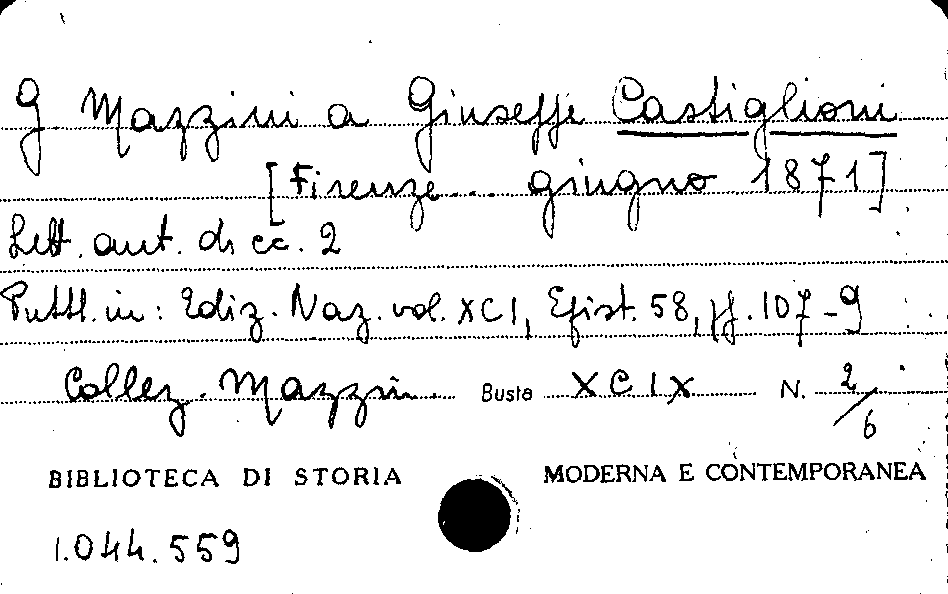 G Mazzini a Giuseppe Castiglioni
[Firenze... giugno 1871]
Lett. aut. di cc. 2
Pubbl. in: Ediz. Naz. vol. XCI, Epist. 58, pp. 107-9
Collez. Mazzini Busta XCIX N. 2/6
BIBLIOTECA DI STORIA MODERNA E CONTEMPORANEA
1.044.559